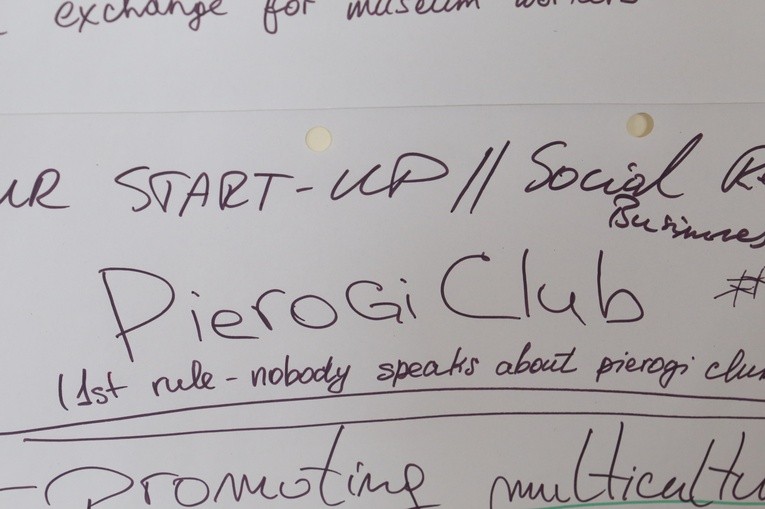 exchange for museum workers
UR START-UP // Social
Business
PieroGi Club #
(1st rule - nobody speaks about pierogi clu
- Promoting multicultu